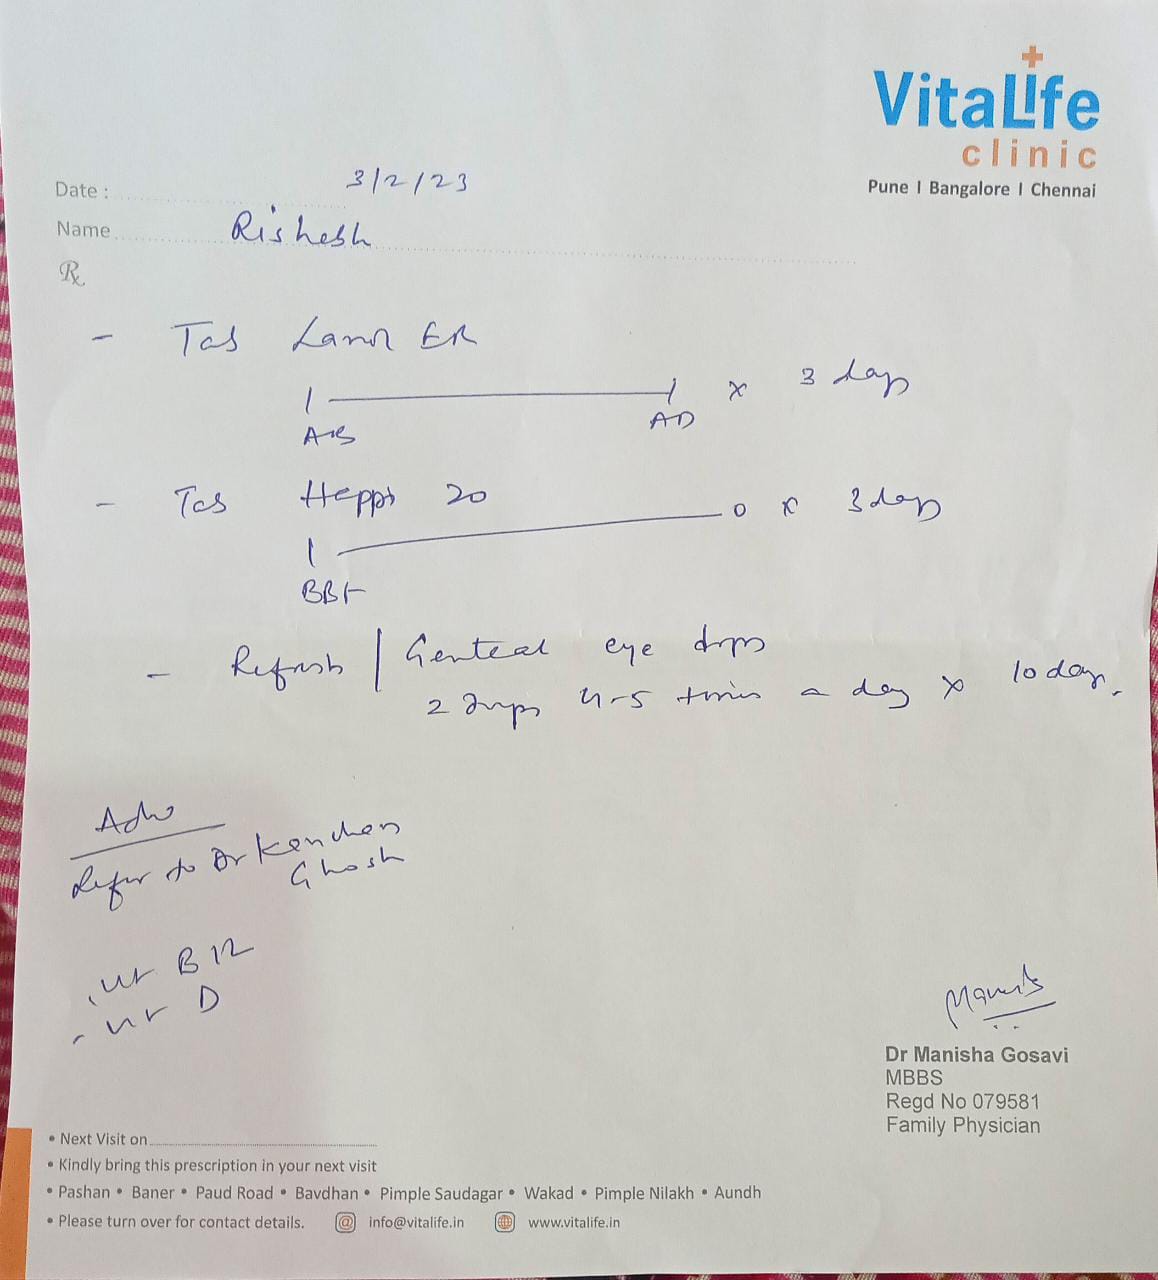 VitaLife
clinic
Pune | Bangalore | Chennai
Date : 3/2/23
Name Rishesh
Rx
- Tab ER
1 1 x 3 days
AB AD
- Tab Happi 20
1 0 x 3 days
BBF
- Refresh / Genteal eye drops
2 drops 4-5 times a day x 10 days.
Adv
Refer to Dr Kanchan
Ghosh
B12
D
Dr Manisha Gosavi
MBBS
Regd No 079581
Family Physician
• Next Visit on
• Kindly bring this prescription in your next visit
• Pashan • Baner • Paud Road • Bavdhan • Pimple Saudagar • Wakad • Pimple Nilakh • Aundh
• Please turn over for contact details. @ info@vitalife.in www.vitalife.in